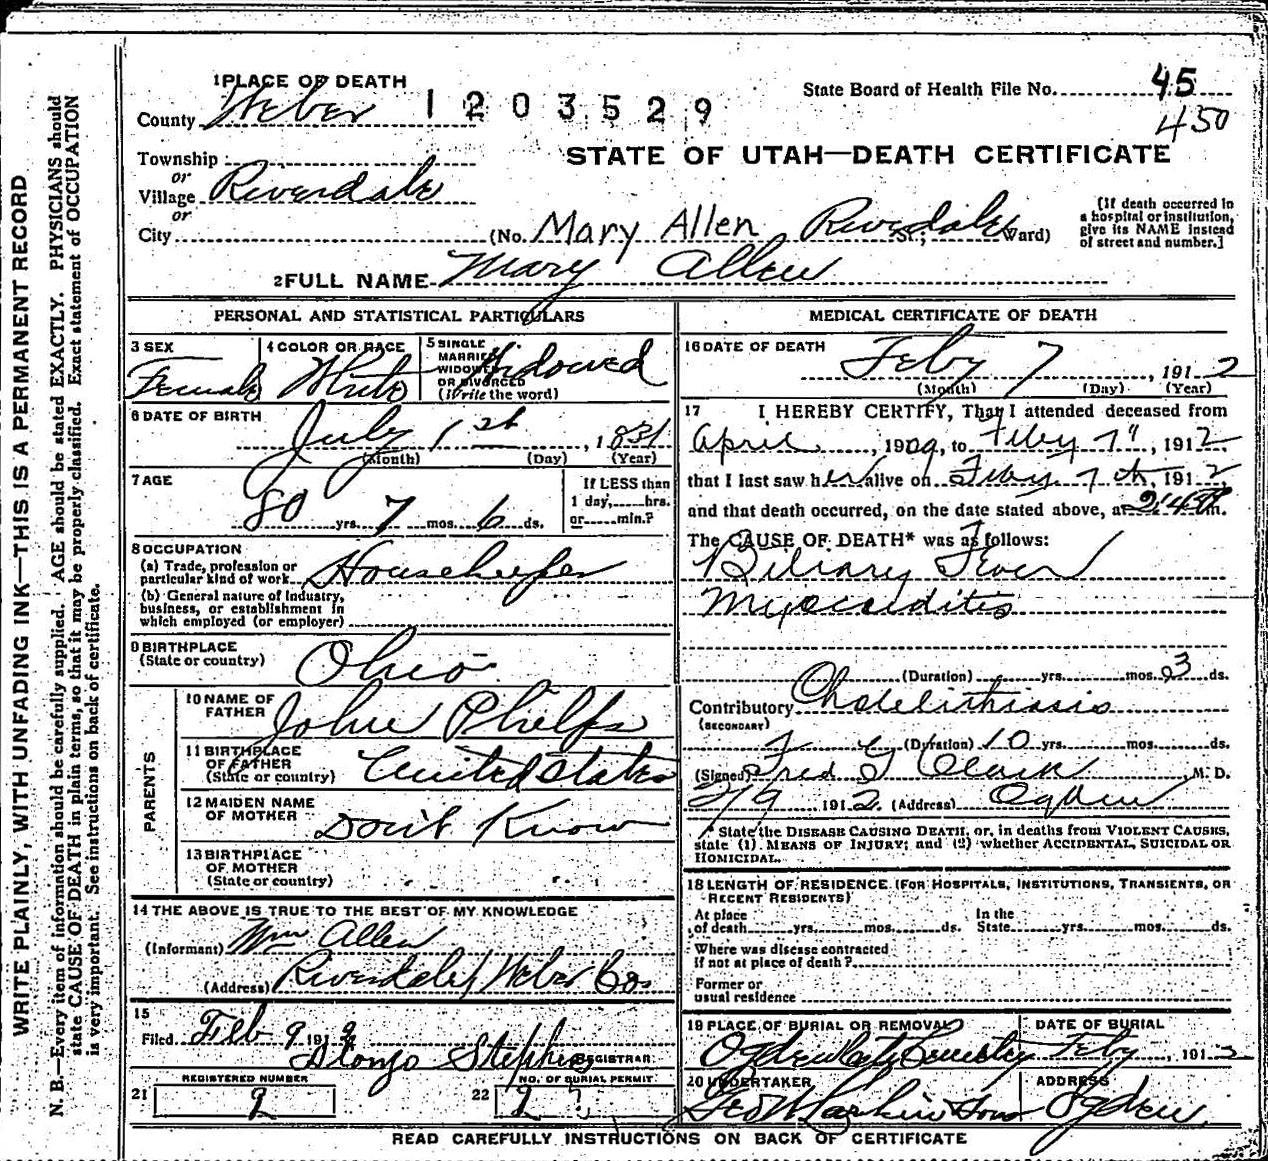 WRITE PLAINLY, WITH UNFADING INK—THIS IS A PERMANENT RECORD
N. B.—Every item of information should be carefully supplied. AGE should be stated EXACTLY. PHYSICIANS should
state CAUSE OF DEATH in plain terms, so that it may be properly classified. Exact statement of OCCUPATION
is very important. See instructions on back of certificate.
1 PLACE OF DEATH
County Weber
1203529
State Board of Health File No. 45
450
STATE OF UTAH—DEATH CERTIFICATE
Township
or
Village Riverdale
or
City
(No. Mary Allen Riverdale St.; Ward)
[If death occurred in
a hospital or institution,
give its NAME instead
of street and number.]
2 FULL NAME Mary Allen
PERSONAL AND STATISTICAL PARTICULARS
3 SEX
Female
4 COLOR OR RACE
White
5 SINGLE
MARRIED
WIDOWED
OR DIVORCED
(Write the word)
Widowed
6 DATE OF BIRTH
July 1st, 1831
(Month) (Day) (Year)
7 AGE
80 yrs. 7 mos. 6 ds.
If LESS than
1 day, hrs.
or min.?
8 OCCUPATION
(a) Trade, profession or
particular kind of work Housekeeper
(b) General nature of industry,
business, or establishment in
which employed (or employer)
9 BIRTHPLACE
(State or country) Ohio
PARENTS
10 NAME OF
FATHER John Phelps
11 BIRTHPLACE
OF FATHER
(State or country) United States
12 MAIDEN NAME
OF MOTHER Don't Know
13 BIRTHPLACE
OF MOTHER
(State or country)
14 THE ABOVE IS TRUE TO THE BEST OF MY KNOWLEDGE
(Informant) Wm Allen
(Address) Riverdale Weber Co.
15
Filed Feb 9 191
Alonzo Stephens REGISTRAR
21 REGISTERED NUMBER
9
22 NO. OF BURIAL PERMIT
9
MEDICAL CERTIFICATE OF DEATH
16 DATE OF DEATH
Feby 7, 1912
(Month) (Day) (Year)
17 I HEREBY CERTIFY, That I attended deceased from
April, 1909, to Feby 7", 1912
that I last saw her alive on Feby 7th, 1912,
and that death occurred, on the date stated above, at m.
The CAUSE OF DEATH* was as follows:
Biliary Fever
Myocarditis
(Duration) yrs. mos. 3 ds.
Contributory Cholelithiasis
(SECONDARY)
(Duration) 10 yrs. mos. ds.
(Signed) Fred G Clark M. D.
2/9 1912 (Address) Ogden
* State the DISEASE CAUSING DEATH, or, in deaths from VIOLENT CAUSES,
state (1) MEANS OF INJURY; and (2) whether ACCIDENTAL, SUICIDAL OR
HOMICIDAL.
18 LENGTH OF RESIDENCE (FOR HOSPITALS, INSTITUTIONS, TRANSIENTS, OR
RECENT RESIDENTS)
At place
of death yrs. mos. ds.
In the
State yrs. mos. ds.
Where was disease contracted
If not at place of death?
Former or
usual residence
19 PLACE OF BURIAL OR REMOVAL
Ogden City Cemetery
DATE OF BURIAL
Feby, 1912
20 UNDERTAKER
Geo W Larkin Sons
ADDRESS
Ogden
READ CAREFULLY INSTRUCTIONS ON BACK OF CERTIFICATE